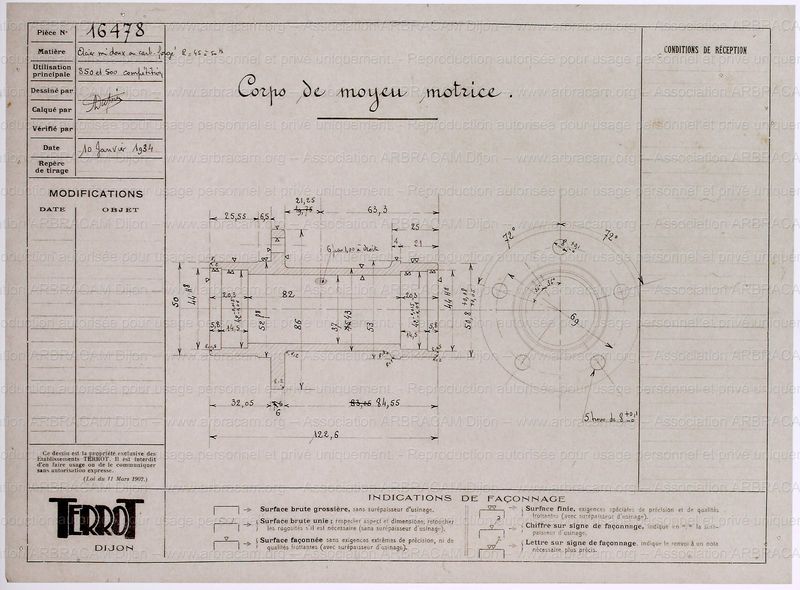 Pièce N° 16478
Matière
Utilisation
principale 350 et 500 compétition
Dessiné par
Calqué par
Vérifié par
Date 10 Janvier 1934
Repère
de tirage
MODIFICATIONS
DATE OBJET
Corps de moyeu motrice.
CONDITIONS DE RÉCEPTION
21,25
25,55 6,5 63,3
25
4 21
72° 72°
50
44 H8
20,3 82 20,3
5,8 14,5 52 86 37 53 14,5
44 H8
50,8
69
32,05 6 83,05 84,55
122,6
5 trous de 8
Ce dessin est la propriété exclusive des
Etablissements TERROT. Il est interdit
d'en faire usage ou de le communiquer
sans autorisation expresse.
(Loi du 11 Mars 1902.)
TERROT
DIJON
INDICATIONS DE FAÇONNAGE
Surface brute grossière, sans surépaisseur d'usinage.
Surface brute unie; respecter aspect et dimensions; retoucher
les rugosités s'il est nécessaire (sans surépaisseur d'usinage).
Surface façonnée sans exigences extrêmes de précision, ni de
qualités frottantes (avec surépaisseur d'usinage).
Surface finie, exigences spéciales de précision et de qualités
frottantes (avec surépaisseur d'usinage).
Chiffre sur signe de façonnage, indique en la surépaisseur d'usinage.
Lettre sur signe de façonnage, indique le renvoi à un nota
nécessaire plus précis.
www.arbracam.org – Association ARBRACAM Dijon – Reproduction autorisée pour usage personnel et privé uniquement.